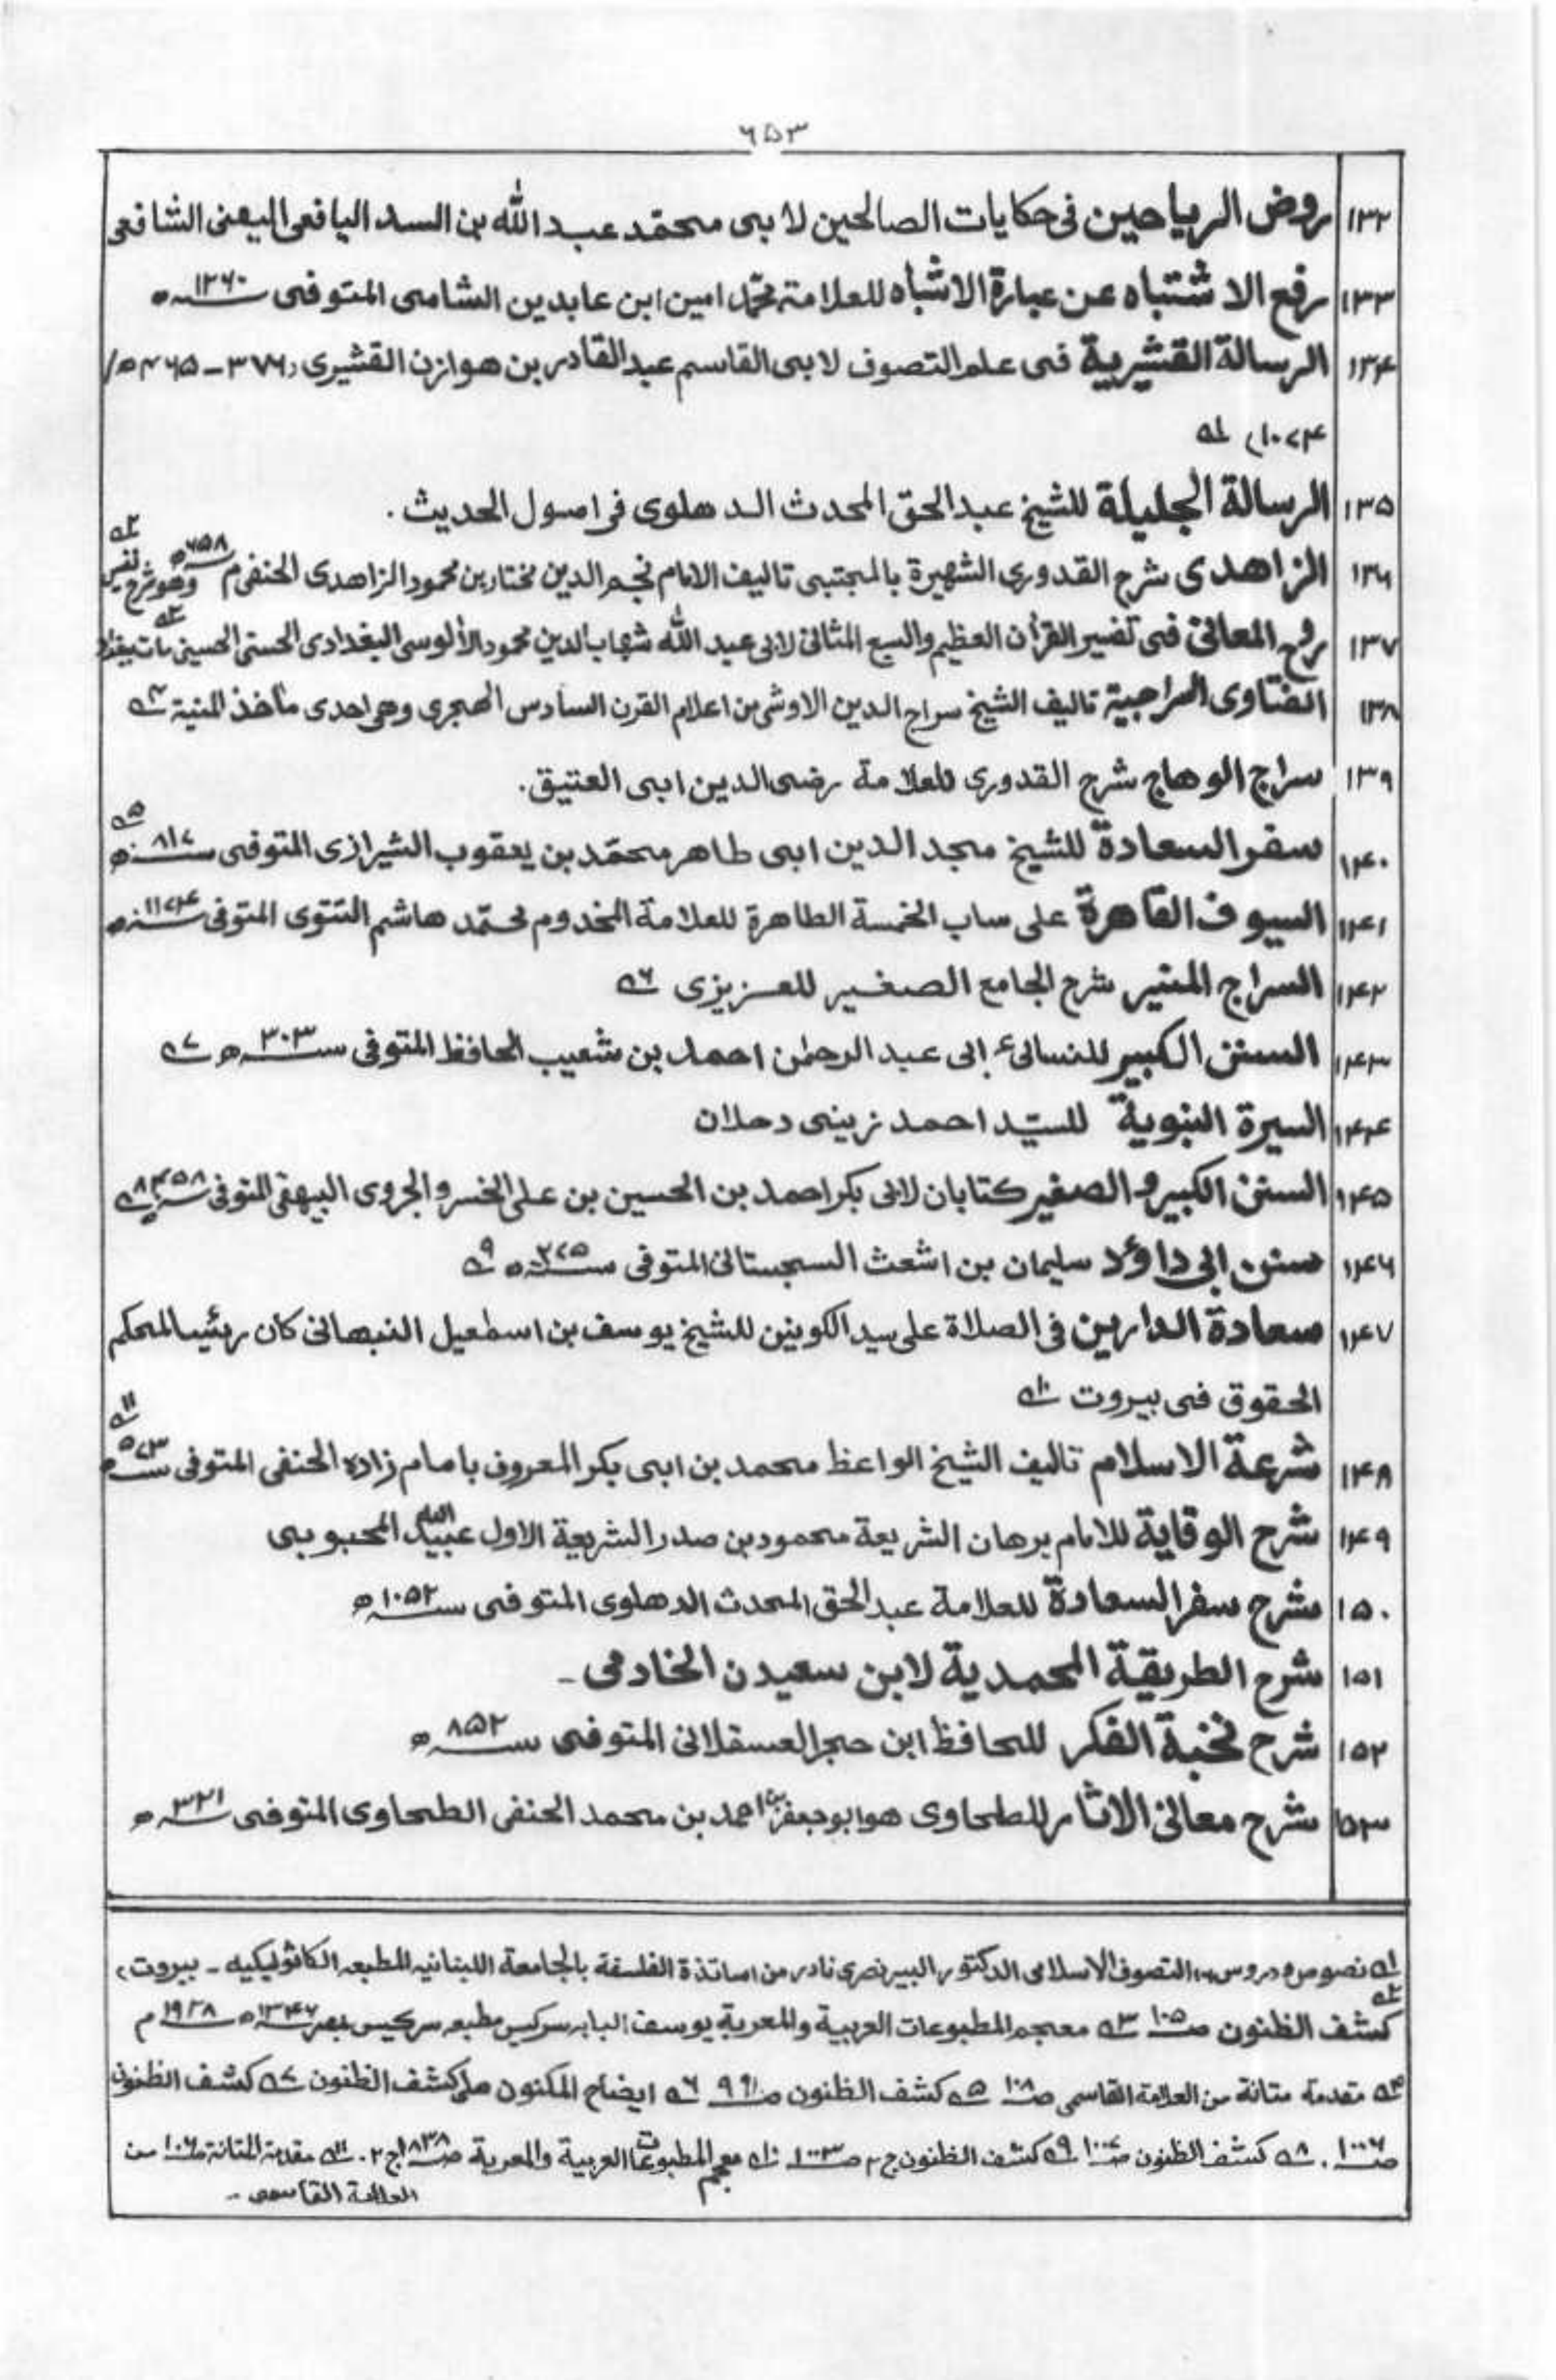 ۶۵۳
۱۳۲ روض الرياحين فى حكايات الصالحين لابى محمّد عبد الله بن السد اليافعى اليمنى الشافعى
۱۳۳ رفع الاشتباه عن عبارة الاشباه للعلامة محمّد امين ابن عابدين الشامى المتوفى سنہ ۱۲۶۰ ھ
۱۳۴ الرسالة القشيرية فى علم التصوف لابى القاسم عبد القادر بن هوازن القشيرى (۳۷۶ – ۴۶۵ ھ/
۱۰۷۴) ؎۱
۱۳۵ الرسالة الجليلة للشيخ عبد الحق المحدث الدهلوى فى اصول الحديث .
۱۳۶ الزاهدى شرح القدورى الشهيرة بالمجتبى تاليف الامام نجم الدين مختار بن محمود الزاهدى الحنفى م ۶۵۸ ھ وهو شرح نفيس ؎۲
۱۳۷ روح المعانى فى تفسير القرأن العظيم والسبع المثانى لابى عبد الله شهاب الدين محمود الألوسى البغدادى الحسنى الحسينى مات ببغداد ؎۳
۱۳۸ الفتاوى السراجية تاليف الشيخ سراج الدين الاوشى من اعلام القرن السادس الهجرى وهى احدى مأخذ المنية ؎۴
۱۳۹ سراج الوهاج شرح القدورى للعلامة رضى الدين ابى العتيق.
۱۴۰ سفر السعادة للشيخ مجد الدين ابى طاهر محمّد بن يعقوب الشيرازى المتوفى سنہ ۸۱۷ ھ ؎۵
۱۴۱ السيوف القاهرة على ساب الخمسة الطاهرة للعلامة المخدوم محمّد هاشم التتوى المتوفى سنہ ۱۱۷۴ ھ
۱۴۲ السراج المنير شرح الجامع الصغير للعزيزى ؎۶
۱۴۳ السنن الكبير للنسائىء ابى عبد الرحمٰن احمد بن شعيب الحافظ المتوفى سنہ ۳۰۳ ھ ؎۷
۱۴۴ السيرة النبوية للسيّد احمد زينى دحلان
۱۴۵ السنن الكبير والصغير كتابان لابى بكر احمد بن الحسين بن على الخسروالجردى البيهقى المتوفى سنہ ۴۵۸ ؎۸
۱۴۶ سنن ابى داؤد سليمان بن اشعث السجستانى المتوفى سنہ ۲۷۵ ھ ؎۹
۱۴۷ سعادة الدارين فى الصلاة على سيد الكونين للشيخ يوسف بن اسمٰعيل النبهانى كان رئيس المحكم
الحقوق فى بيروت ؎۱۰
۱۴۸ شرعة الاسلام تاليف الشيخ الواعظ محمد بن ابى بكر المعروف بامام زاده الحنفى المتوفى سنہ ۵۷۳ ھ ؎۱۱
۱۴۹ شرح الوقاية للامام برهان الشريعة محمود بن صدر الشريعة الاول عبيد الله المحبوبى
۱۵۰ شرح سفر السعادة للعلامة عبد الحق المحدث الدهلوى المتوفى سنہ ۱۰۵۲ ھ
۱۵۱ شرح الطريقة المحمدية لابن سعيدن الخادمى -
۱۵۲ شرح نخبة الفكر للحافظ ابن حجر العسقلانى المتوفى سنہ ۸۵۲ ھ
۱۵۳ شرح معانى الاثار للطحاوى هو ابو جعفر بن احمد بن محمد الحنفى الطحاوى المتوفى سنہ ۳۲۱ ھ
؎۱ نصوص ودروس التصوف الاسلامى الدكتور البير نصرى نادر من اساتذة الفلسفة بالجامعة اللبنانيه المطبعه الكاثوليكيه - بيروت،
؎۲ كشف الظنون صـ۱۰۵ ؎۳ معجم المطبوعات العربية والمعربة يوسف اليابه سركيس مطبعه سركيس بمصر سنہ ۱۳۴۶ ھ سنہ ۱۹۲۸ م
؎۴ مقدمة متانة من العلامة القاسمى صـ۱۰۸ ؎۵ كشف الظنون صـ۹۹۱ ؎۶ ايضاح المكنون على كشف الظنون ؎۷ كشف الظنون
صـ۱۰۰۶ . ؎۸ كشف الظنون صـ۱۰۰۷ ؎۹ كشف الظنون ج ۲ صـ۱۰۰۳ ؎۱۰ معجم المطبوعات العربية والمعربة صـ۱۸۳۸ ج ۲ . ؎۱۱ مقدمة المتانة صـ۱۰۶ من
العلامة القاسمى -